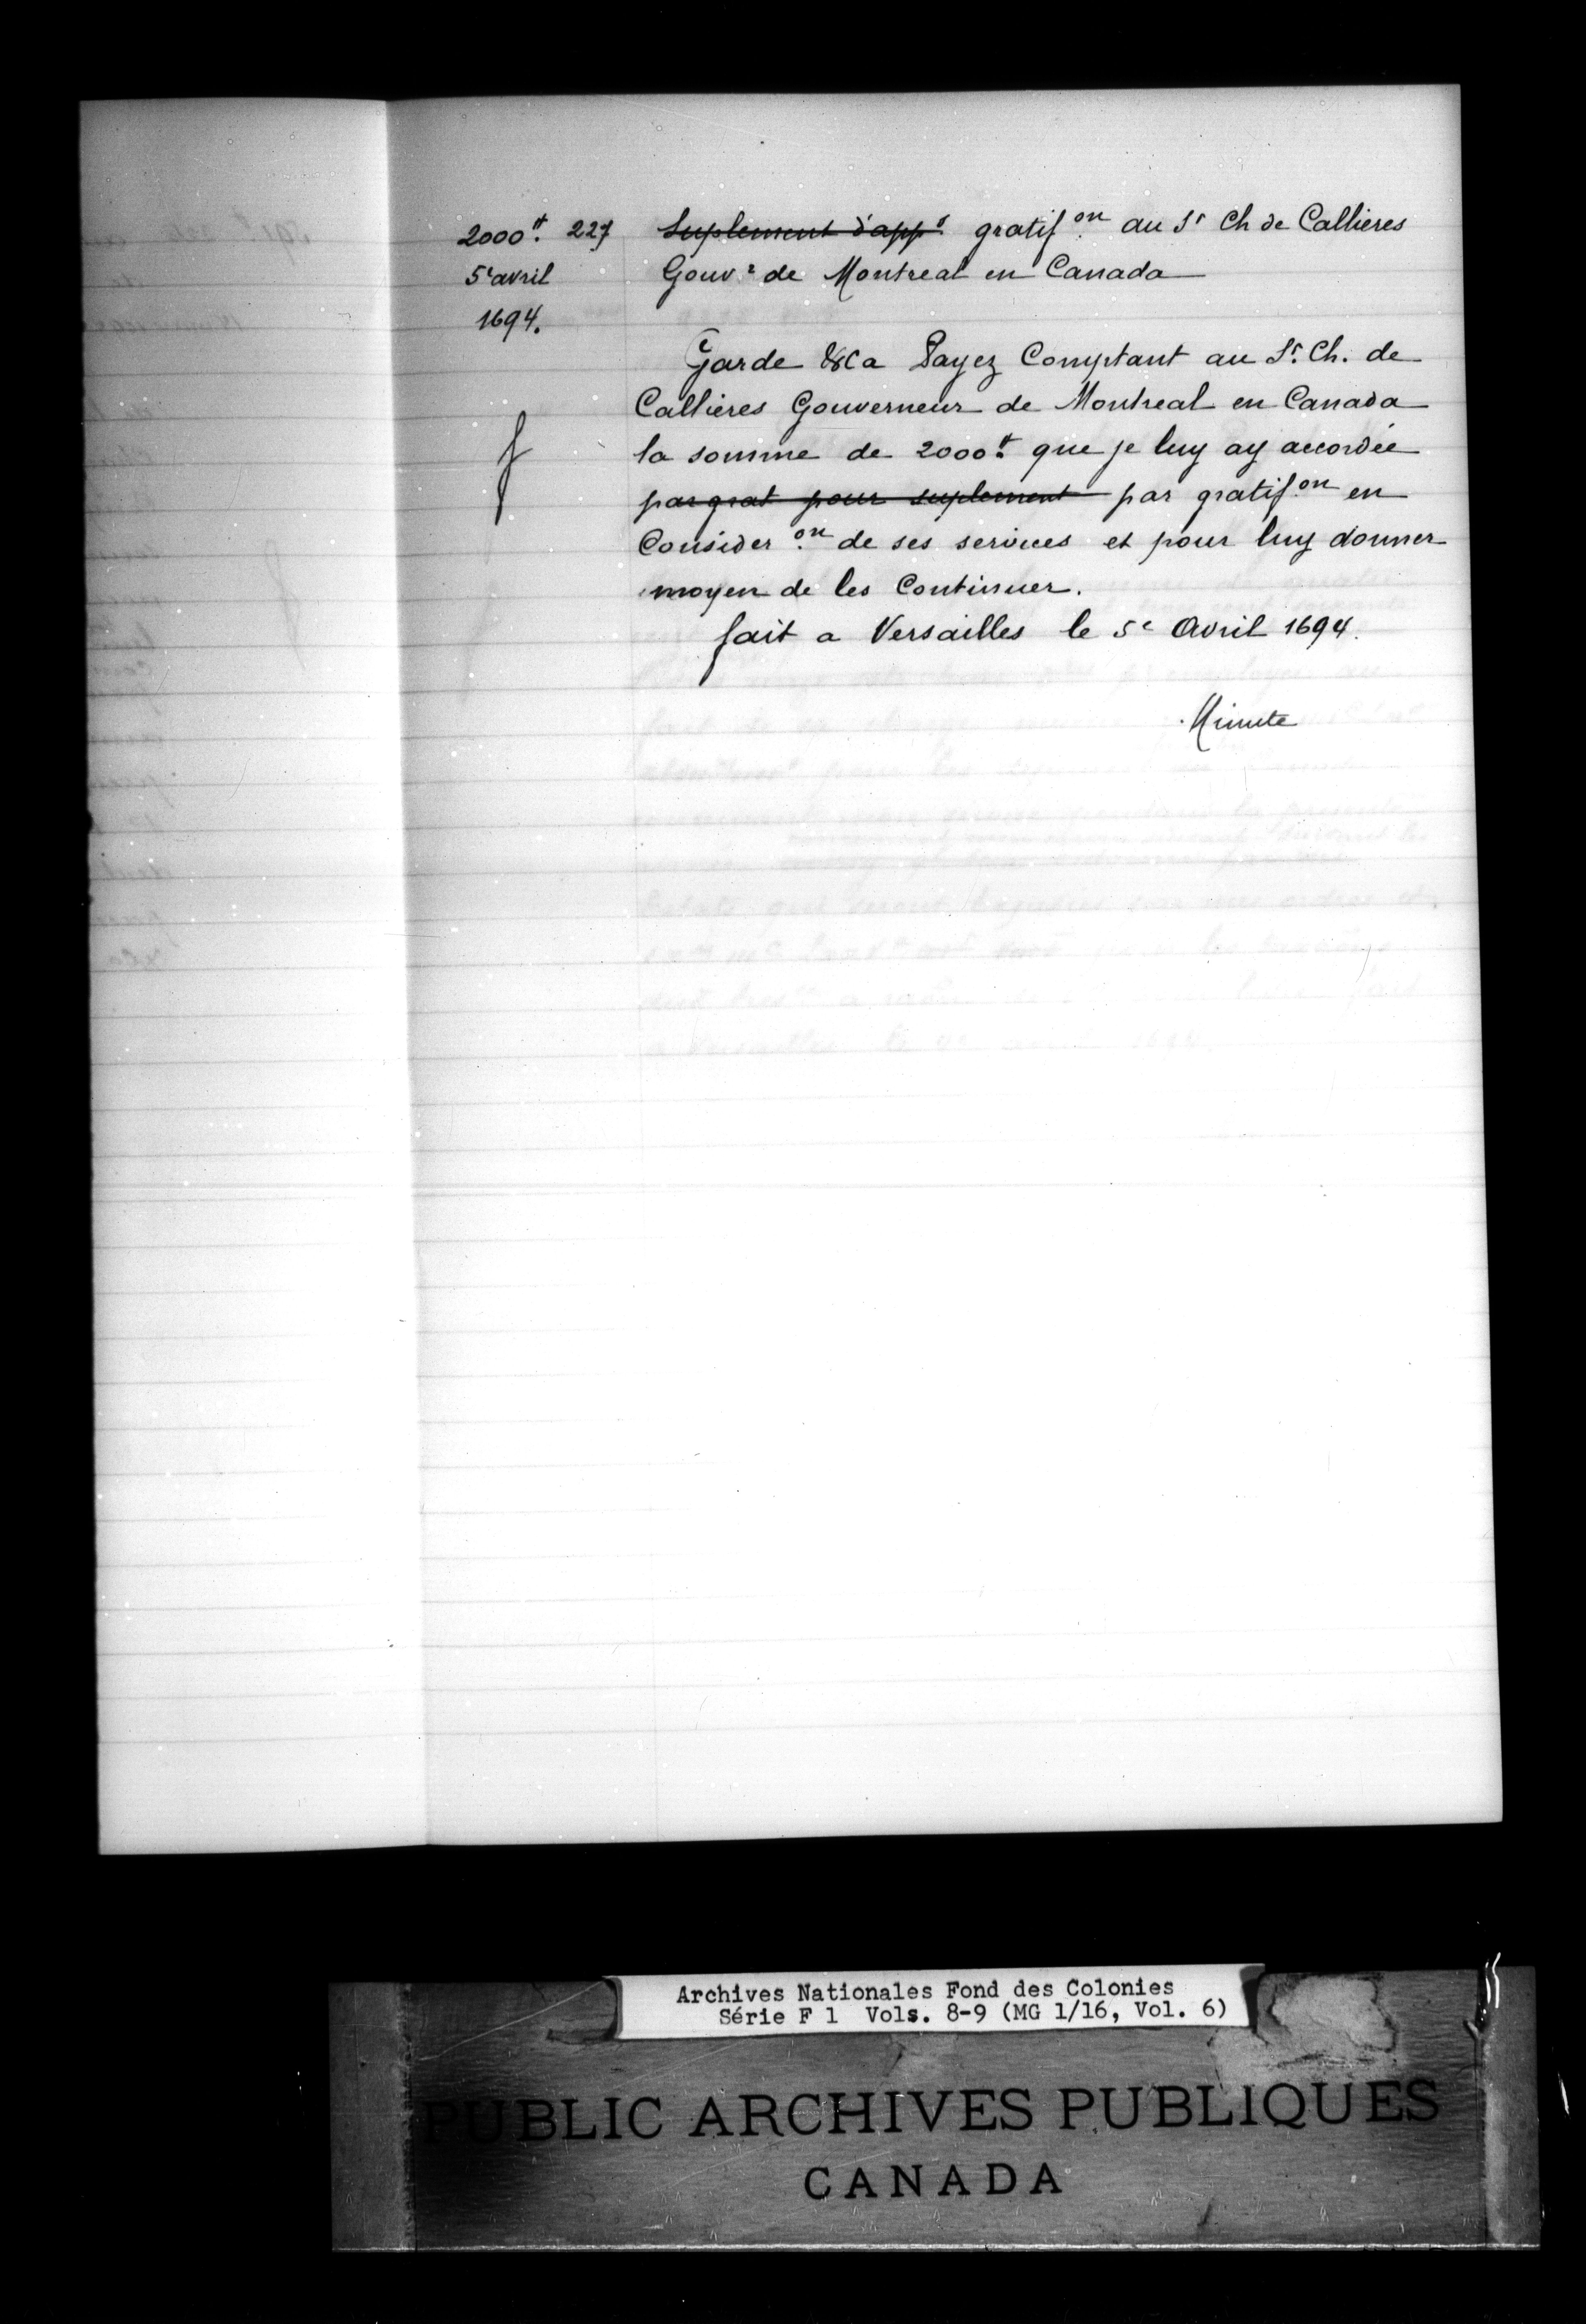 2000ᵗᵗ 227 ~~Suplement d'app^t~~ gratif^on au S^r Ch de Callieres
5^e avril Gouv^r de Montreal en Canada
1694.
Garde &ca Payez Comptant au S^r. Ch. de
Callieres Gouverneur de Montreal en Canada
la somme de 2000ᵗᵗ que je luy ay accordée
~~par grat pour suplement~~ par gratif^on en
Consider^on de ses services et pour luy donner
moyen de les Continuer.
fait a Versailles le 5^e Avril 1694.
Minute
Archives Nationales Fond des Colonies
Série F 1 Vols. 8-9 (MG 1/16, Vol. 6)
PUBLIC ARCHIVES PUBLIQUES
CANADA